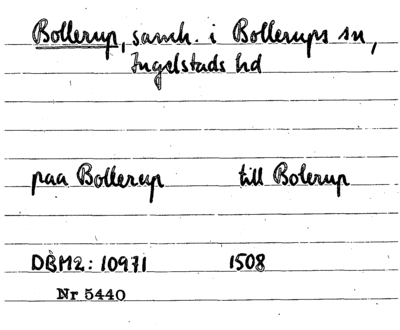 Bollerup, samh. i Bollerups sn,
Ingelstads hd
paa Bollerup till Bolerup
DBM2: 10971 1508
Nr 5440